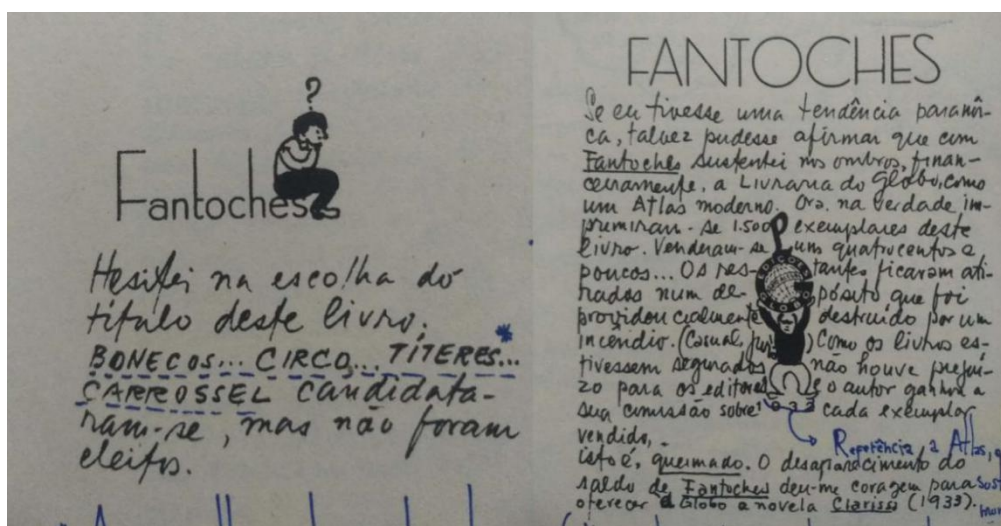 ?
Fantoches
Hesitei na escolha do
título deste livro:
BONECOS... CIRCO... TÍTERES...*
CARROSSEL candidata-
ram-se, mas não foram
eleitos.
FANTOCHES
Se eu tivesse uma tendência paranói-
ca, talvez pudesse afirmar que com
Fantoches sustentei nos ombros, finan-
ceiramente, a Livraria do Globo, como
um Atlas moderno. Ora, na verdade im-
primiram-se 1.500 exemplares deste
livro. Venderam-se um quatrocentos e
poucos... Os res- tantes ficaram ati-
rados num de- pósito que foi
providencialmente destruído por um
incêndio. (Casual, ) Como os livros es-
tivessem segurados não houve prejuí-
zo para os editores e o autor ganhou a
sua comissão sobre cada exemplar
vendido, -
isto é, queimado. O desaparecimento do
saldo de Fantoches deu-me coragem para
oferecer à Globo a novela Clarissa (1933).
EDIÇÕES
GLOBO
1933
Referência a Atlas,